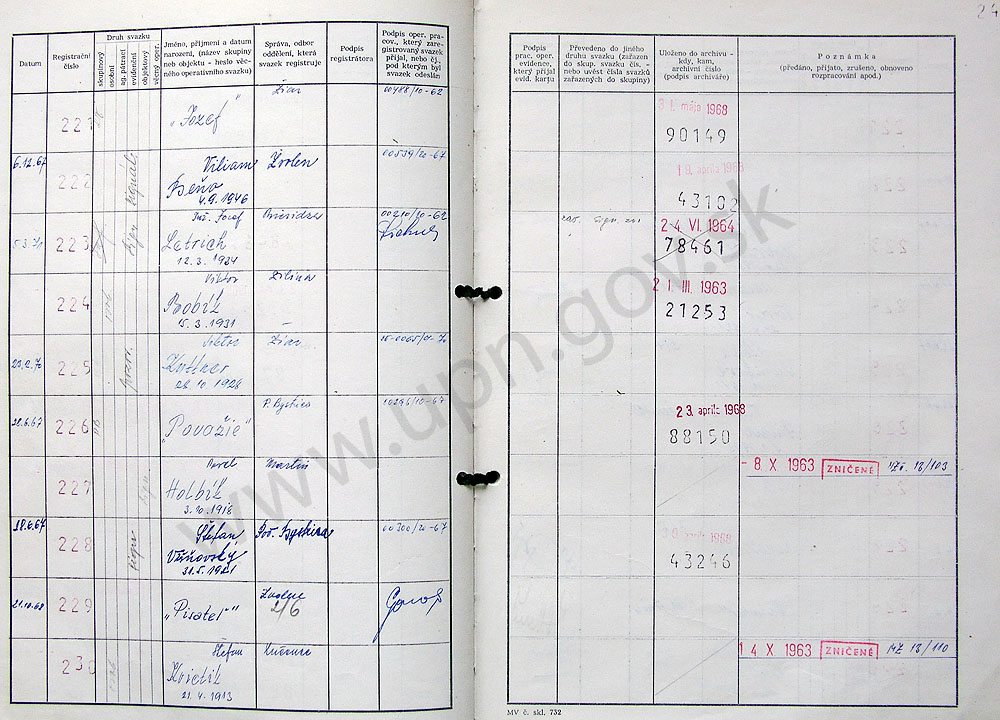 24
Datum
Registrační číslo
Druh svazku
skupinový
osobní
ag. pátrací
evidenční
objektový
věcný oper.
Jméno, příjmení a datum
narození, (název skupiny
neb objektu - heslo věc-
ného operativního svazku)
Správa, odbor
oddělení, která
svazek registruje
Podpis
registrátora
Podpis oper. pra-
cov., který zare-
gistrovaný svazek
přijal, nebo čj.,
pod kterým byl
svazek odeslán
Podpis
prac. oper.
evidence,
který přijal
evid. kartu
Převedeno do jiného
druhu svazku (zařazen
do skup. svazku čís. -
nebo uvést čísla svazků
zařazených do skupiny)
Uloženo do archivu -
kdy, kam,
archivní číslo
(podpis archiváře)
Poznámka
(předáno, přijato, zrušeno, obnoveno
rozpracování apod.)
221 „Jozef" Žiar 00488/10-62
31. mája 1968
90149
6.12.67 222 signál. Viliam Beňo 4.9.1946 Zvolen 00539/20-67
18. apríla 1968
43102
223 Ing. Jozef Letrich 12.3.1934 Prievidza 00210/10-62
24. VI. 1964
78461
224 Viktor Bobík 15.3.1931 Žilina
21. III. 1963
21253
225 pozor. Viktor Kuttner 28.10.1928 Žiar
226 „Považie" P. Bystrica 00296/10-67
23. apríla 1968
88150
227 Pavel Holbík 3.10.1918 Martin
- 8 X 1963 ZNIČENÉ 13/103
18.6.67 228 Štefan 31.5.1921 Pov. Bystrica 00300/20-67
apríla 1968
43246
229 „Pisatel" 2/6
230 Štefan 21.4.1913
14 X 1963 ZNIČENÉ 13/110
MV č. skl. 732
www.upn.gov.sk